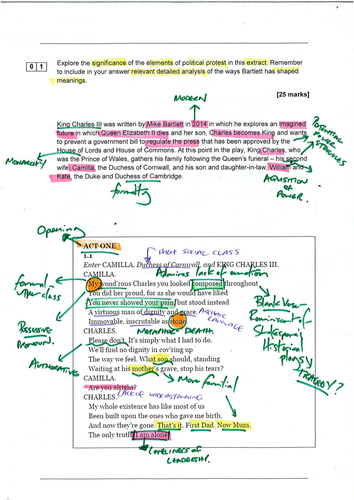 0 1
Explore the significance of the elements of political protest in this extract. Remember
to include in your answer relevant detailed analysis of the ways Bartlett has shaped
meanings.
[25 marks]
MODERN
King Charles III was written by Mike Bartlett in 2014 in which he explores an imagined
future in which Queen Elizabeth II dies and her son, Charles becomes King and wants
to prevent a government bill to regulate the press that has been approved by the
House of Lords and House of Commons. At this point in the play, King Charles, who
was the Prince of Wales, gathers his family following the Queen's funeral – his second
wife Camilla, the Duchess of Cornwall, and his son and daughter-in-law, William and
Kate, the Duke and Duchess of Cambridge.
POTENTIAL
POWER
STRUGGLES
MONARCHY
formality
AQUISITION
OF
POWER.
Opening
ACT ONE
HIGH SOCIAL CLASS
1.1
Enter CAMILLA, Duchess of Cornwall, and KING CHARLES III.
CAMILLA.
Admires lack of emotion
My wond'rous Charles you looked composed throughout
You did her proud, for as she would have liked
You never showed your pain, but stood instead
A virtuous man of dignity and grace.
Immovable, inscrutable as stone.
CHARLES.
Please don't. It's simply what I had to do.
We'll find no dignity in cov'ring up
The way we feel. What son should, standing
Waiting at his mother's grave, stop his tears?
CAMILLA.
Are you alright?
CHARLES.
My whole existence has like most of us
Been built upon the ones who gave me birth.
And now they're gone. That's it. First Dad. Now Mum.
The only truth: I am alone.
formal
upper class
Possessive
Pronoun.
AUTHORATIVE
LANGUAGE
DEATH
LACK OF UNDERSTANDING
More familial
Blank Verse
Reminiscent of
Shakespearean
Historical
Plays
TRAGEDY?
LONELINESS OF
LEADERSHIP.